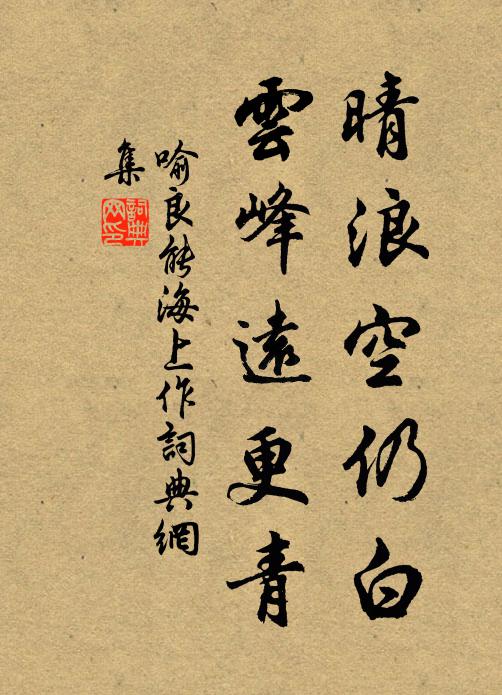 晴浪空仍白
雲峰遠更青
喻良能海上作詞典網
集
詞典
网印